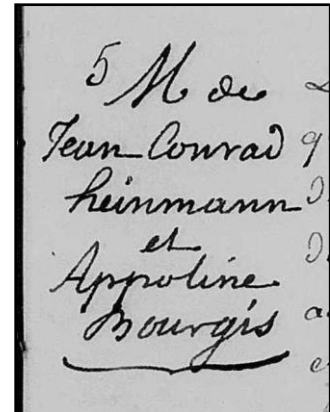 5 M de
Jean Conrad
heinmann
et
Appoline
Bourgis